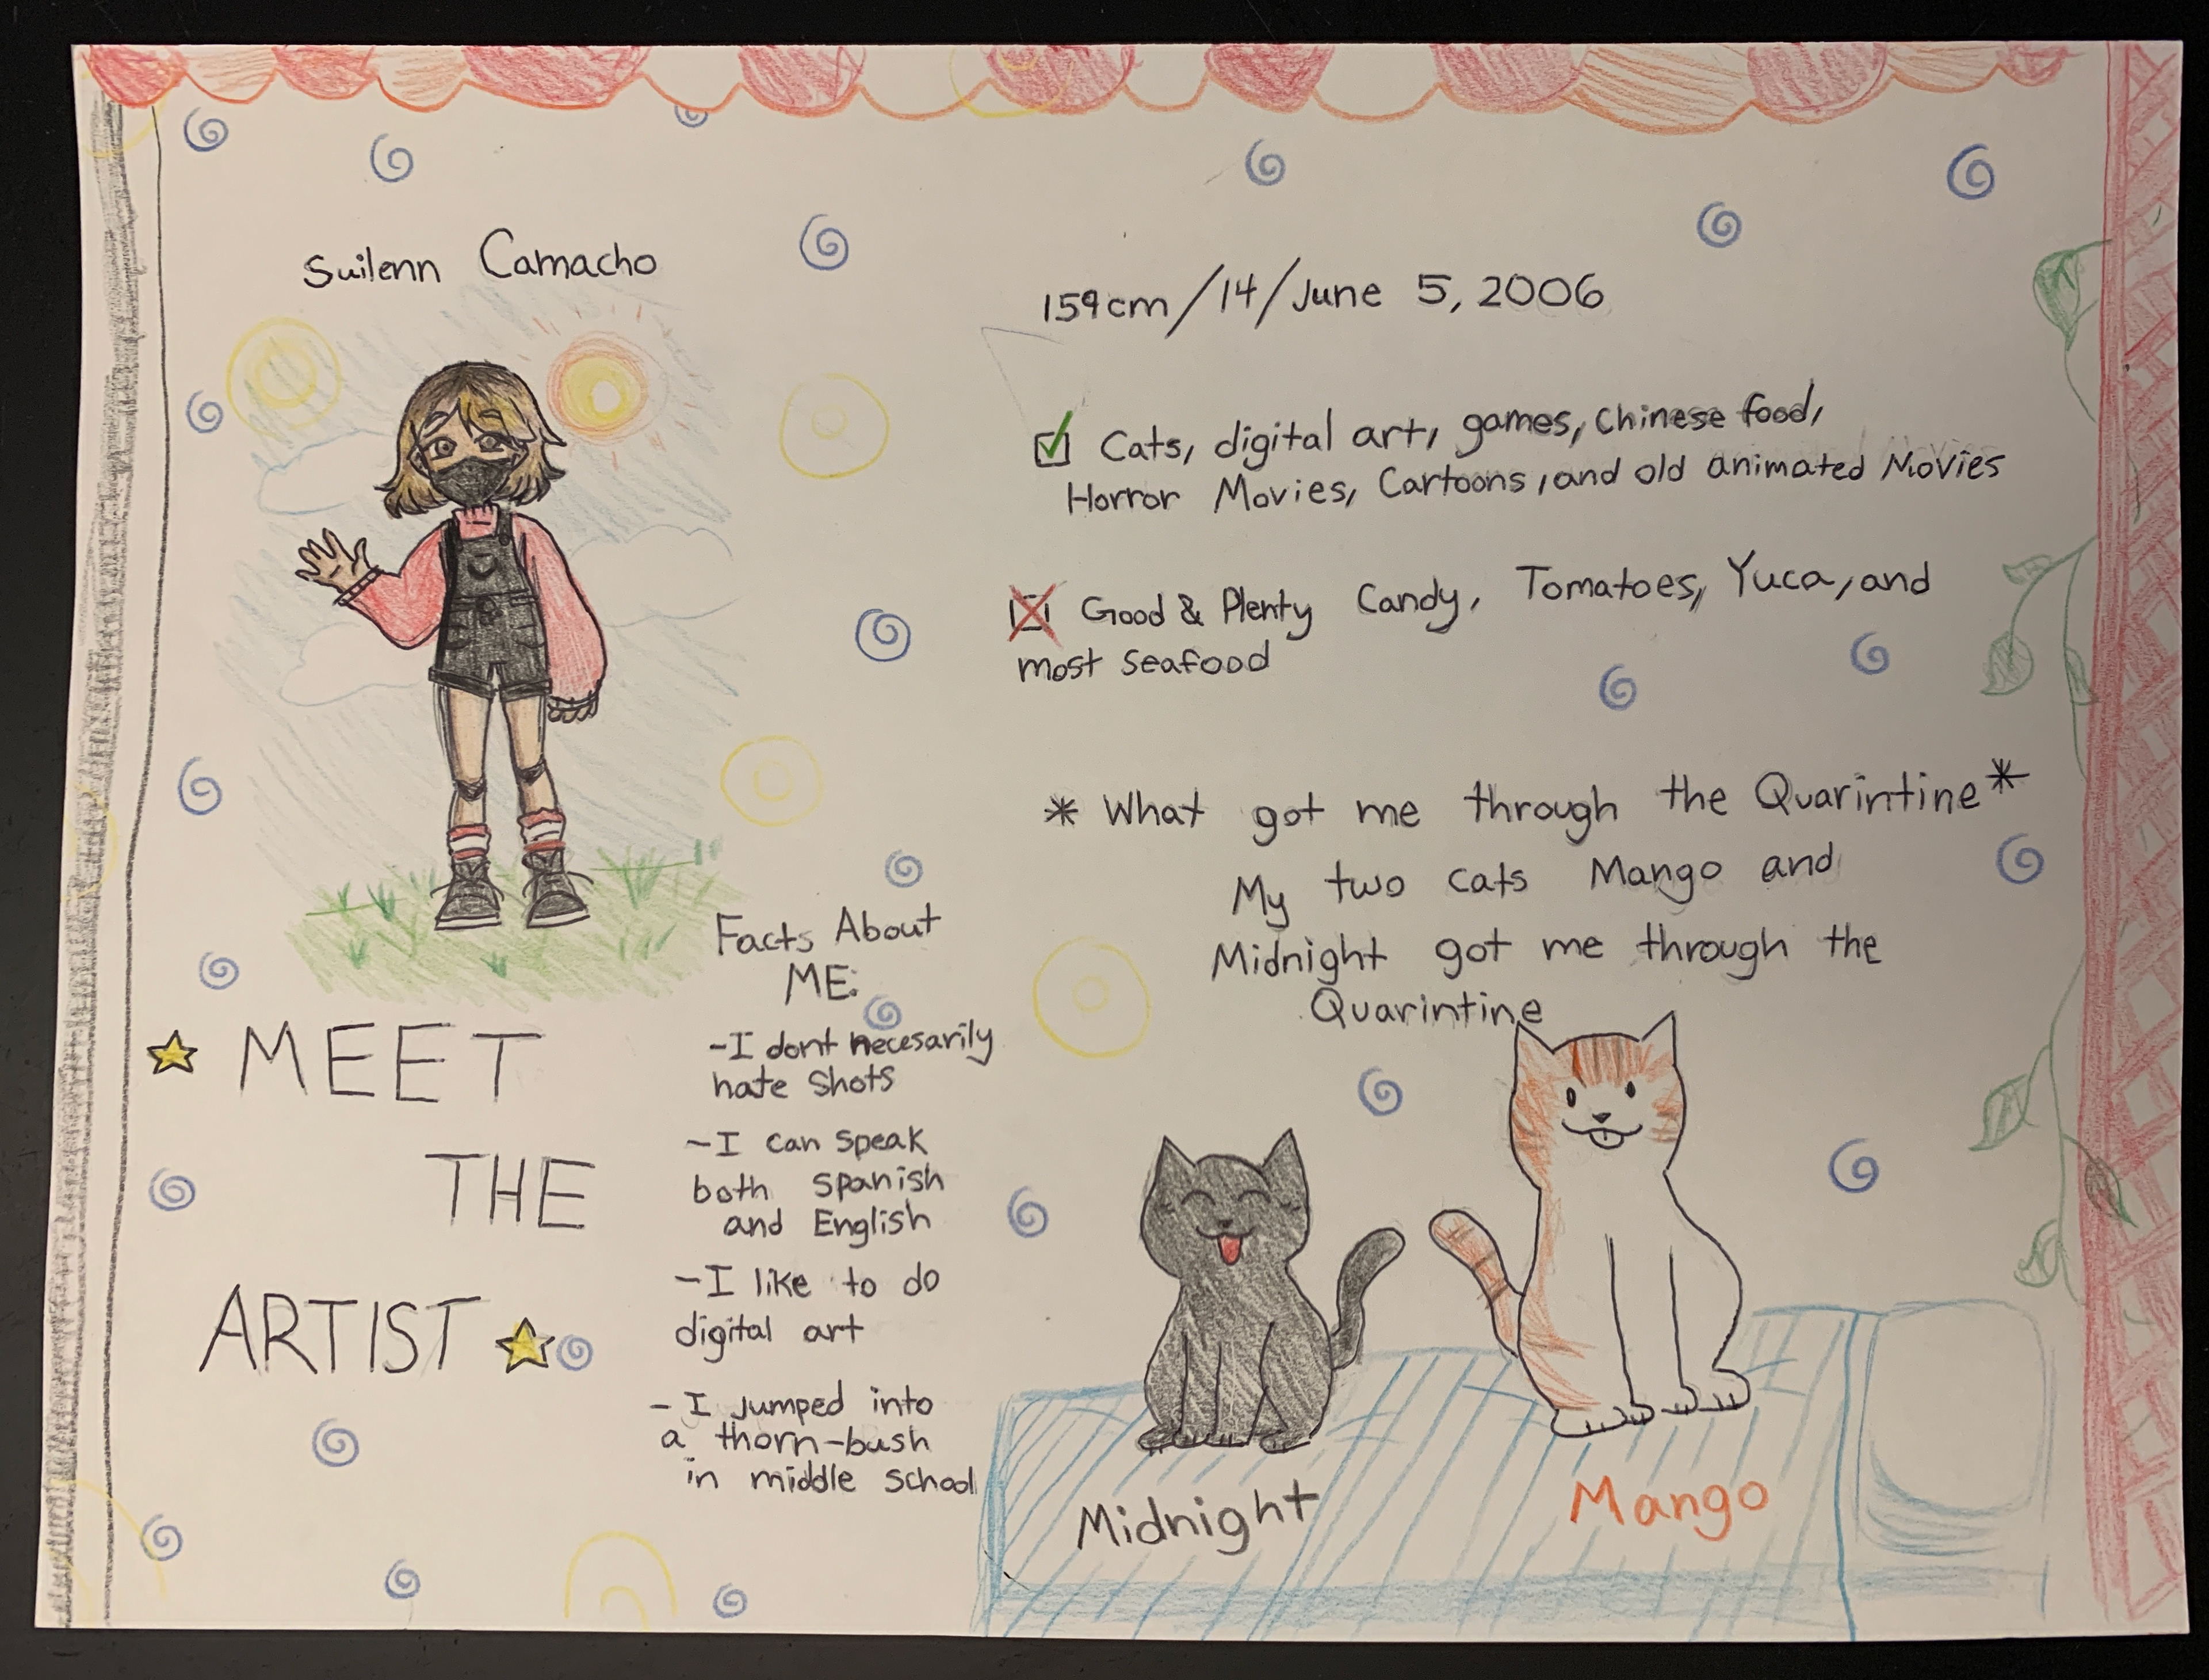 Suilenn Camacho
159cm/14/June 5, 2006
Cats, digital art, games, Chinese food,
Horror Movies, Cartoons, and old animated Movies
Good & Plenty Candy, Tomatoes, Yuca, and
most seafood
* What got me through the Quarintine *
My two cats Mango and
Midnight got me through the
Quarintine
MEET
THE
ARTIST
Facts About
ME:
-I dont necesarily
hate shots
-I can speak
both spanish
and English
-I like to do
digital art
-I jumped into
a thorn-bush
in middle school
Midnight
Mango